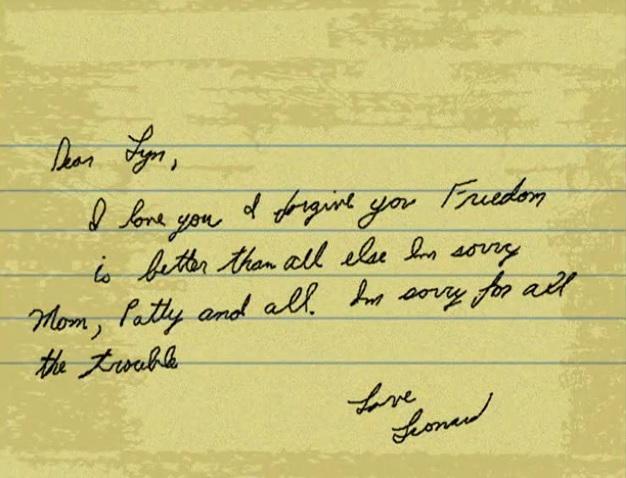 Dear Lyn,
I love you I forgive you Freedom
is better than all else Im sorry
Mom, Patty and all. Im sorry for all
the trouble
Love
Leonard